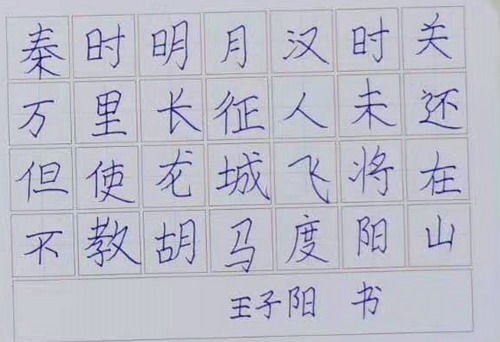 秦时明月汉时关
万里长征人未还
但使龙城飞将在
不教胡马度阳山
王子阳 书